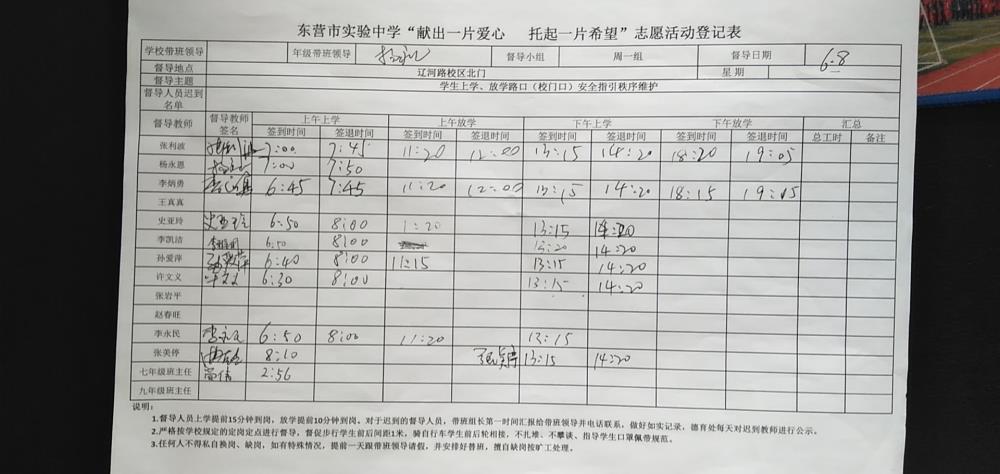 东营市实验中学“献出一片爱心 托起一片希望”志愿活动登记表
学校带班领导 年级带班领导 督导小组 周一组 督导日期 6-8
督导地点 辽河路校区北门 星期
督导主题 学生上学、放学路口（校门口）安全指引秩序维护
督导人员迟到
名单
督导教师 督导教师签名 上午上学 上午放学 下午上学 下午放学 汇总
签到时间 签退时间 签到时间 签退时间 签到时间 签退时间 签到时间 签退时间 总工时 备注
张利波 7:00 7:45 11:20 12:00 13:15 14:20 18:20 19:05
杨永恩 7:00 7:50
李炳勇 6:45 7:45 11:20 12:00 13:15 14:20 18:15 19:15
王真真
史亚玲 史亚玲 6:50 8:00 1:20 13:15 14:20
李凯洁 6:50 8:00 13:20 14:20
孙爱萍 6:40 8:00 11:15 13:15 14:20
许文义 6:30 8:00 13:15 14:20
张岩平
赵春旺
李永民 李永民 6:50 8:00 11:20 13:15
张美停 8:10 13:15 14:20
七年级班主任 2:56
九年级班主任
说明：
1.督导人员上学提前15分钟到岗，放学提前10分钟到岗。对于迟到的督导人员，带班组长第一时间汇报给带班领导并电话联系，做好如实记录，德育处每天对迟到教师进行公示。
2.严格按学校规定的定岗定点进行督导，督促步行学生前后间距1米，骑自行车学生前后轮相接，不扎堆、不攀谈、指导学生口罩佩带规范。
3.任何人不得私自换岗、缺岗，如有特殊情况，提前一天跟带班领导请假，并安排好替班，擅自缺岗按旷工处理。